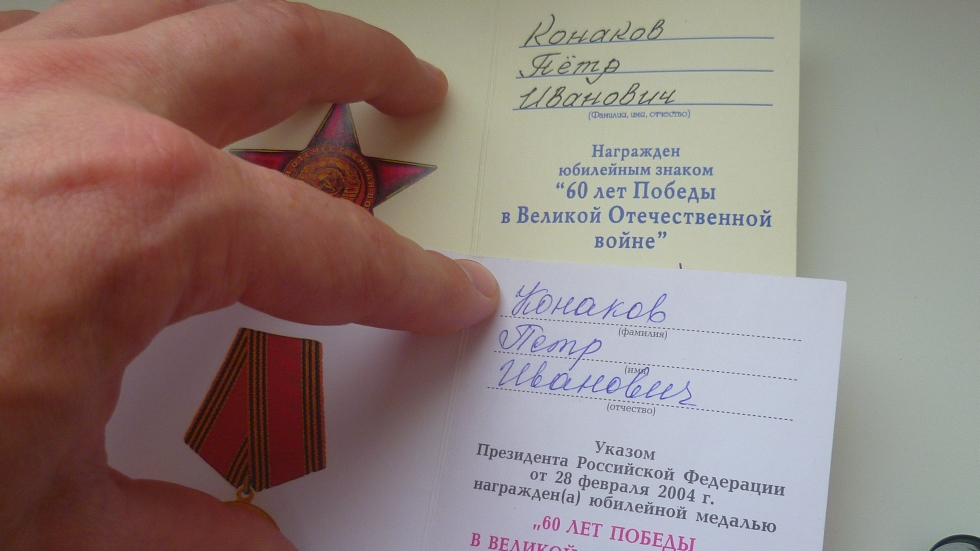 Конаков
Пётр
Иванович
(Фамилия, имя, отчество)
Награжден
юбилейным знаком
“60 лет Победы
в Великой Отечественной
войне”
Конаков
(фамилия)
Петр
(имя)
Иванович
(отчество)
Указом
Президента Российской Федерации
от 28 февраля 2004 г.
награжден(а) юбилейной медалью
„60 ЛЕТ ПОБЕДЫ
В ВЕЛИКОЙ